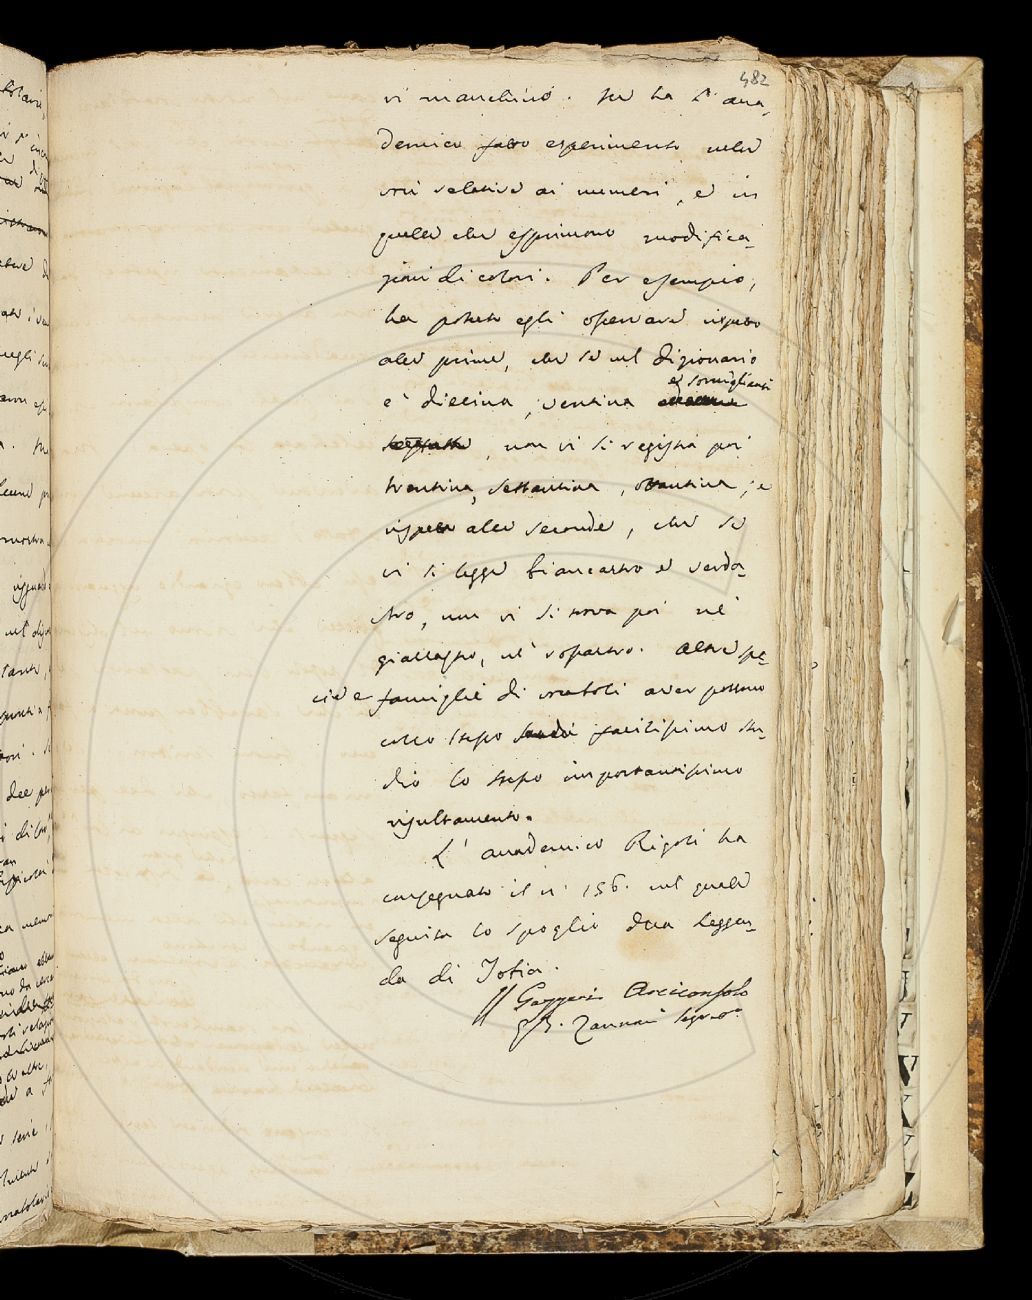 482
vi manchino. Se ha l' acca-
demico fatto esperimento nelle
voci relative ai numeri, e in
quelle che esprimono modifica-
zioni di colori. Per esempio,
ha potuto egli osservare rispetto
alle prime, che se nel dizionario
è diecina, ventina ed somiglianti
, non vi si registra poi
trentina, settantina, ottantina; e
rispetto alle seconde, che se
vi si legge biancastro e verda-
stro, non vi si trova poi nè
giallastro, nè rossastro. Altre spe-
cie e famiglie di vocaboli aver possono
collo stesso facilissimo stu-
dio lo stesso importantissimo
risultamento.
L' accademico Rigoli ha
consegnato il n. 156. nel quale
seguita lo spoglio della Leggen-
da di Tobia.
Gazzeri Arciconsolo
G. B. Zannoni Segret.º